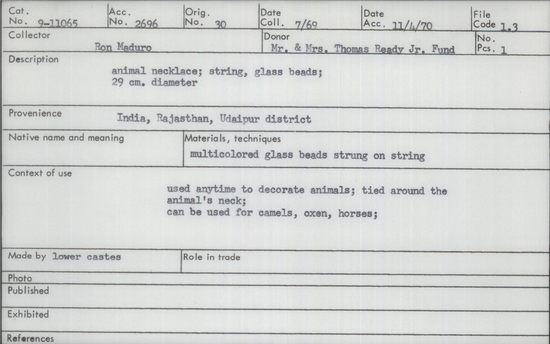 Cat. No. 9-11065 Acc. No. 2696 Orig. No. 30 Date Coll. 7/69 Date Acc. 11/4/70 File Code 1.3
Collector Ron Maduro Donor Mr. & Mrs. Thomas Ready Jr. Fund No. Pcs. 1
Description
animal necklace; string, glass beads;
29 cm. diameter
Provenience India, Rajasthan, Udaipur district
Native name and meaning Materials, techniques
multicolored glass beads strung on string
Context of use
used anytime to decorate animals; tied around the
animal's neck;
can be used for camels, oxen, horses;
Made by lower castes Role in trade
Photo
Published
Exhibited
References